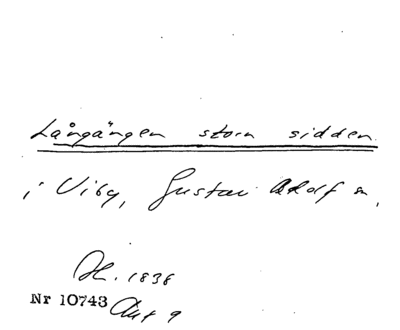 Långängen storn sidden
i Viby, Gustav Adolf sn,
H. 1838
Nr 10743 Akt 9